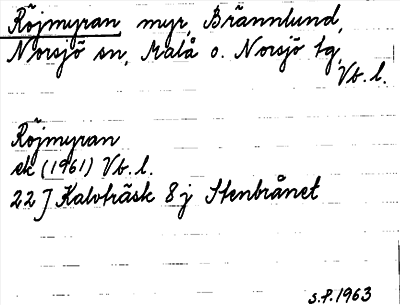 Röjmyran, myr, Brännlund,
Norsjö sn, Malå o. Norsjö tg,
Vb. l.
Röjmyran
ek (1961) Vb. l.
22 J Kalvträsk 8 j Stenbrånet
S.P. 1963